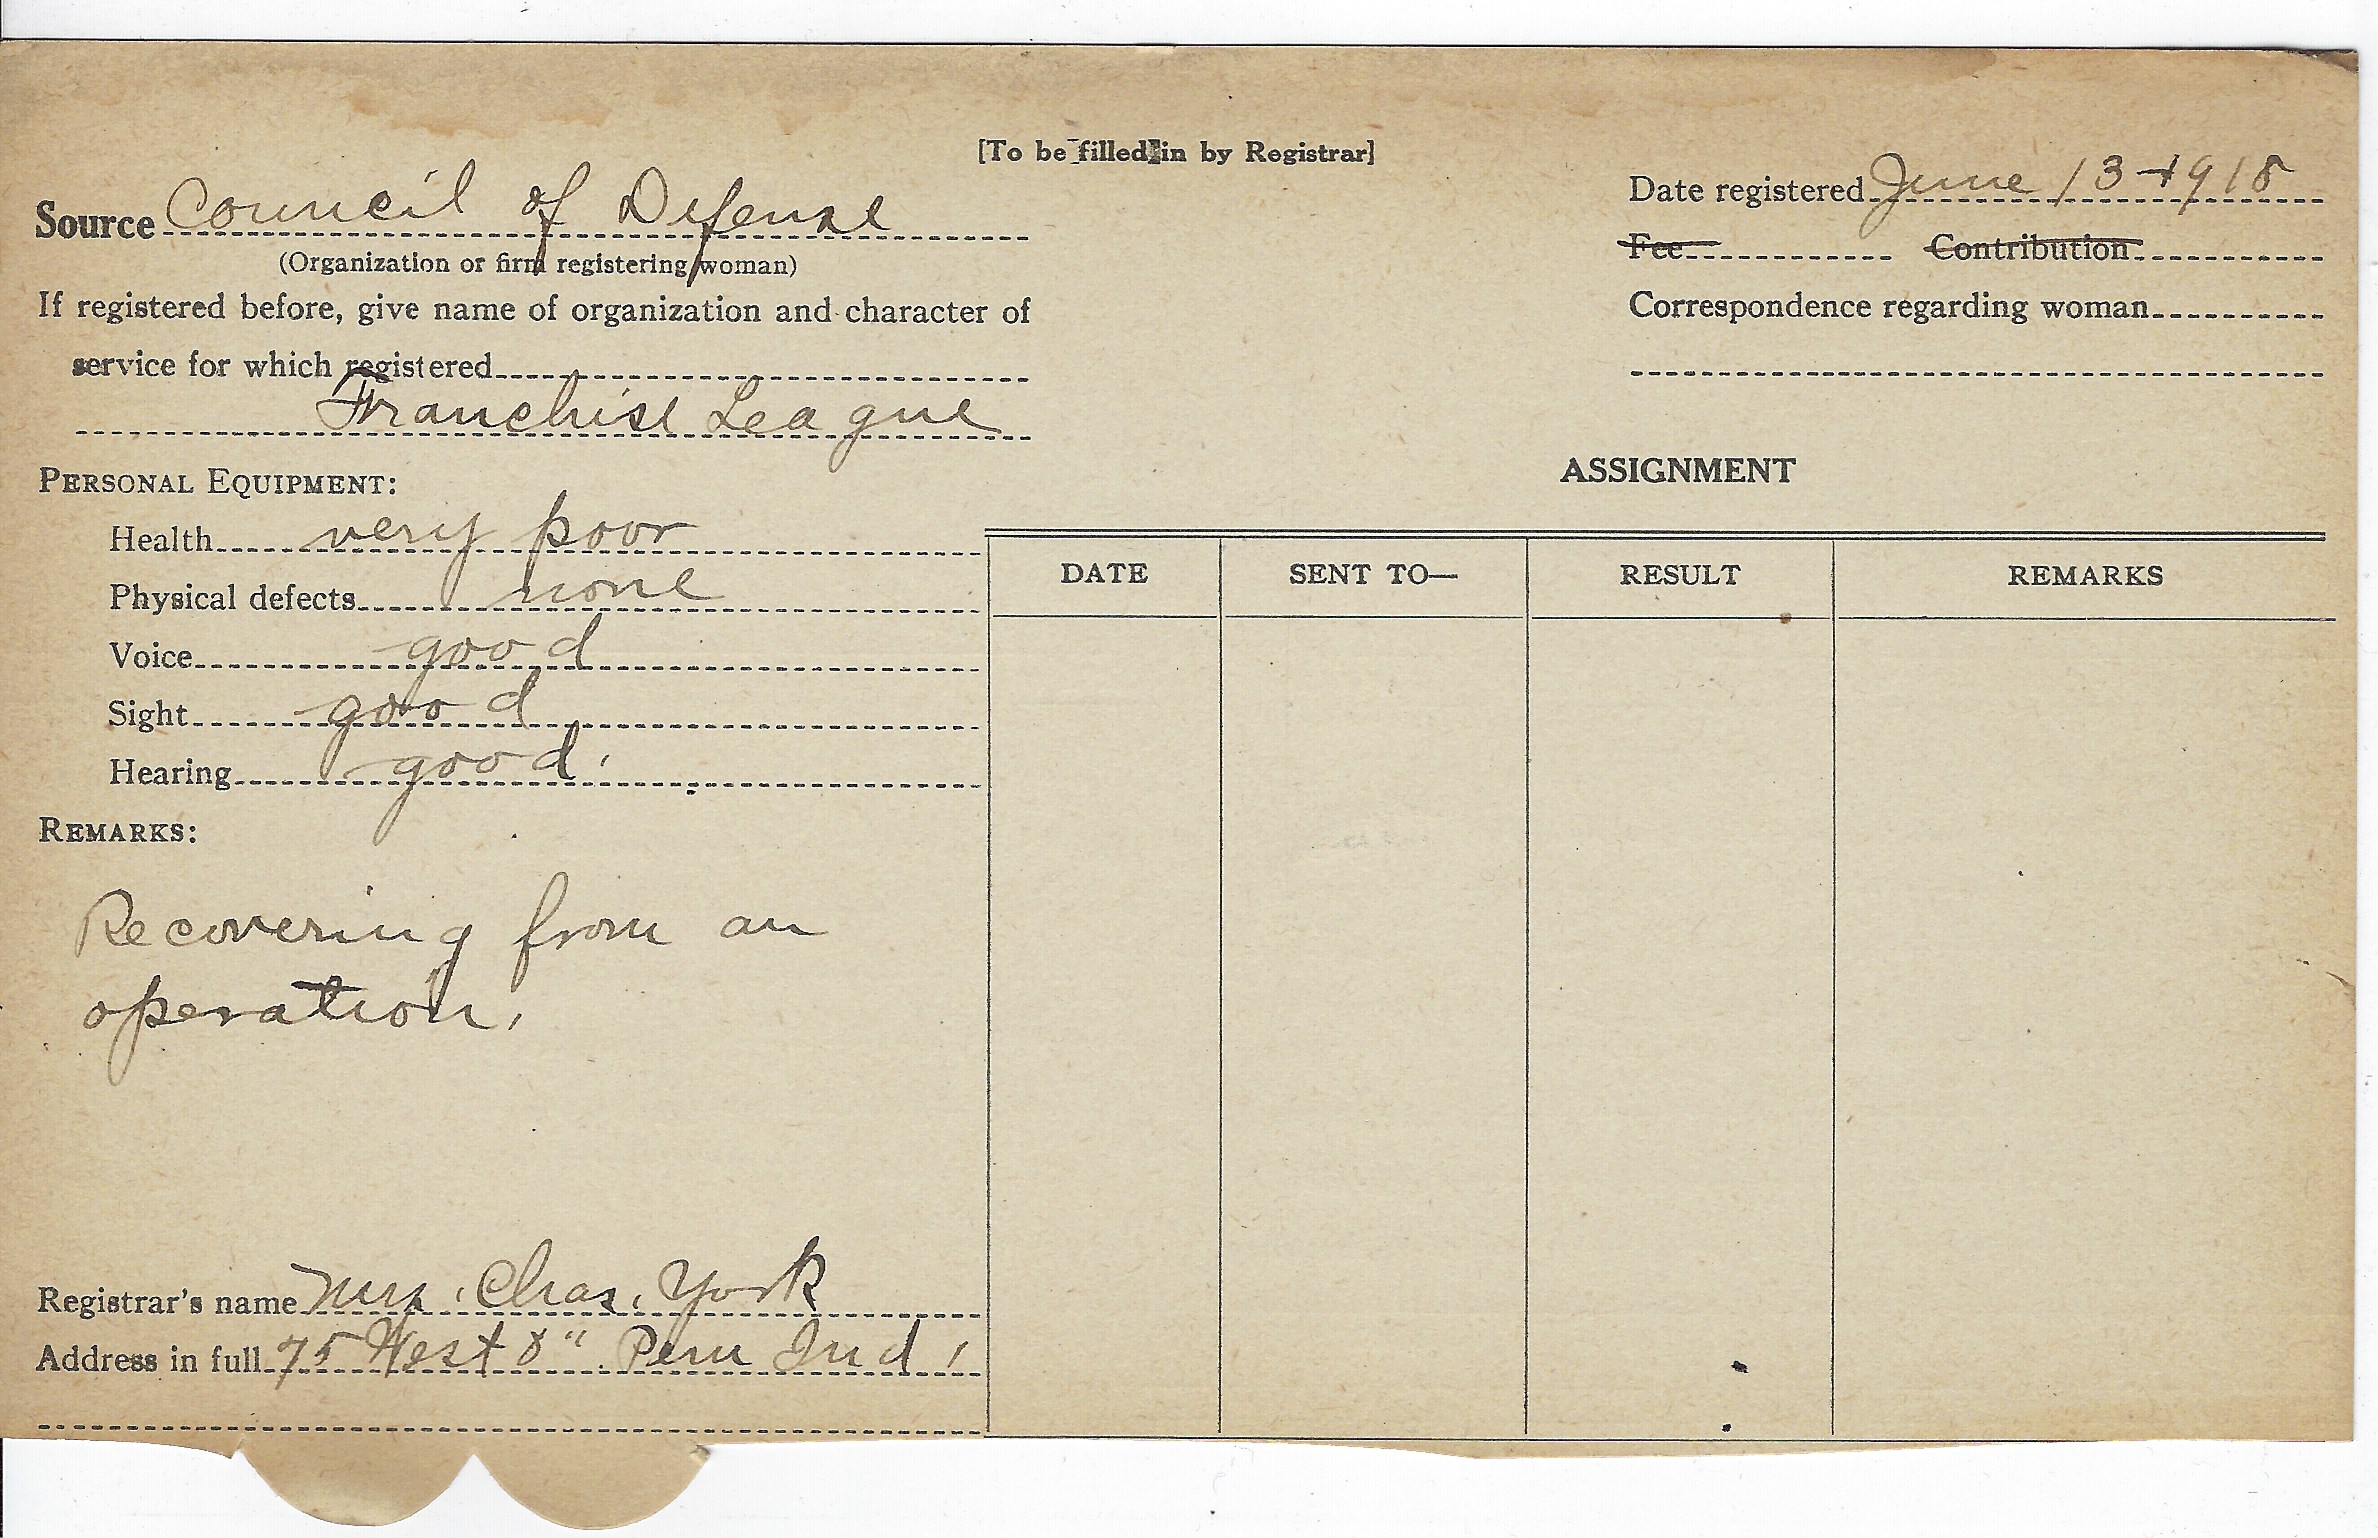 [To be filled in by Registrar]
Source Council of Defense
(Organization or firm registering woman)
If registered before, give name of organization and character of
service for which registered
Franchise League
Date registered June 13-1918
Fee Contribution
Correspondence regarding woman
PERSONAL EQUIPMENT:
Health very poor
Physical defects none
Voice good
Sight good
Hearing good.
REMARKS:
Recovering from an
operation.
Registrar's name Mrs. Chas. York
Address in full 75 West 8" Peru Ind.
ASSIGNMENT
DATE SENT TO— RESULT REMARKS